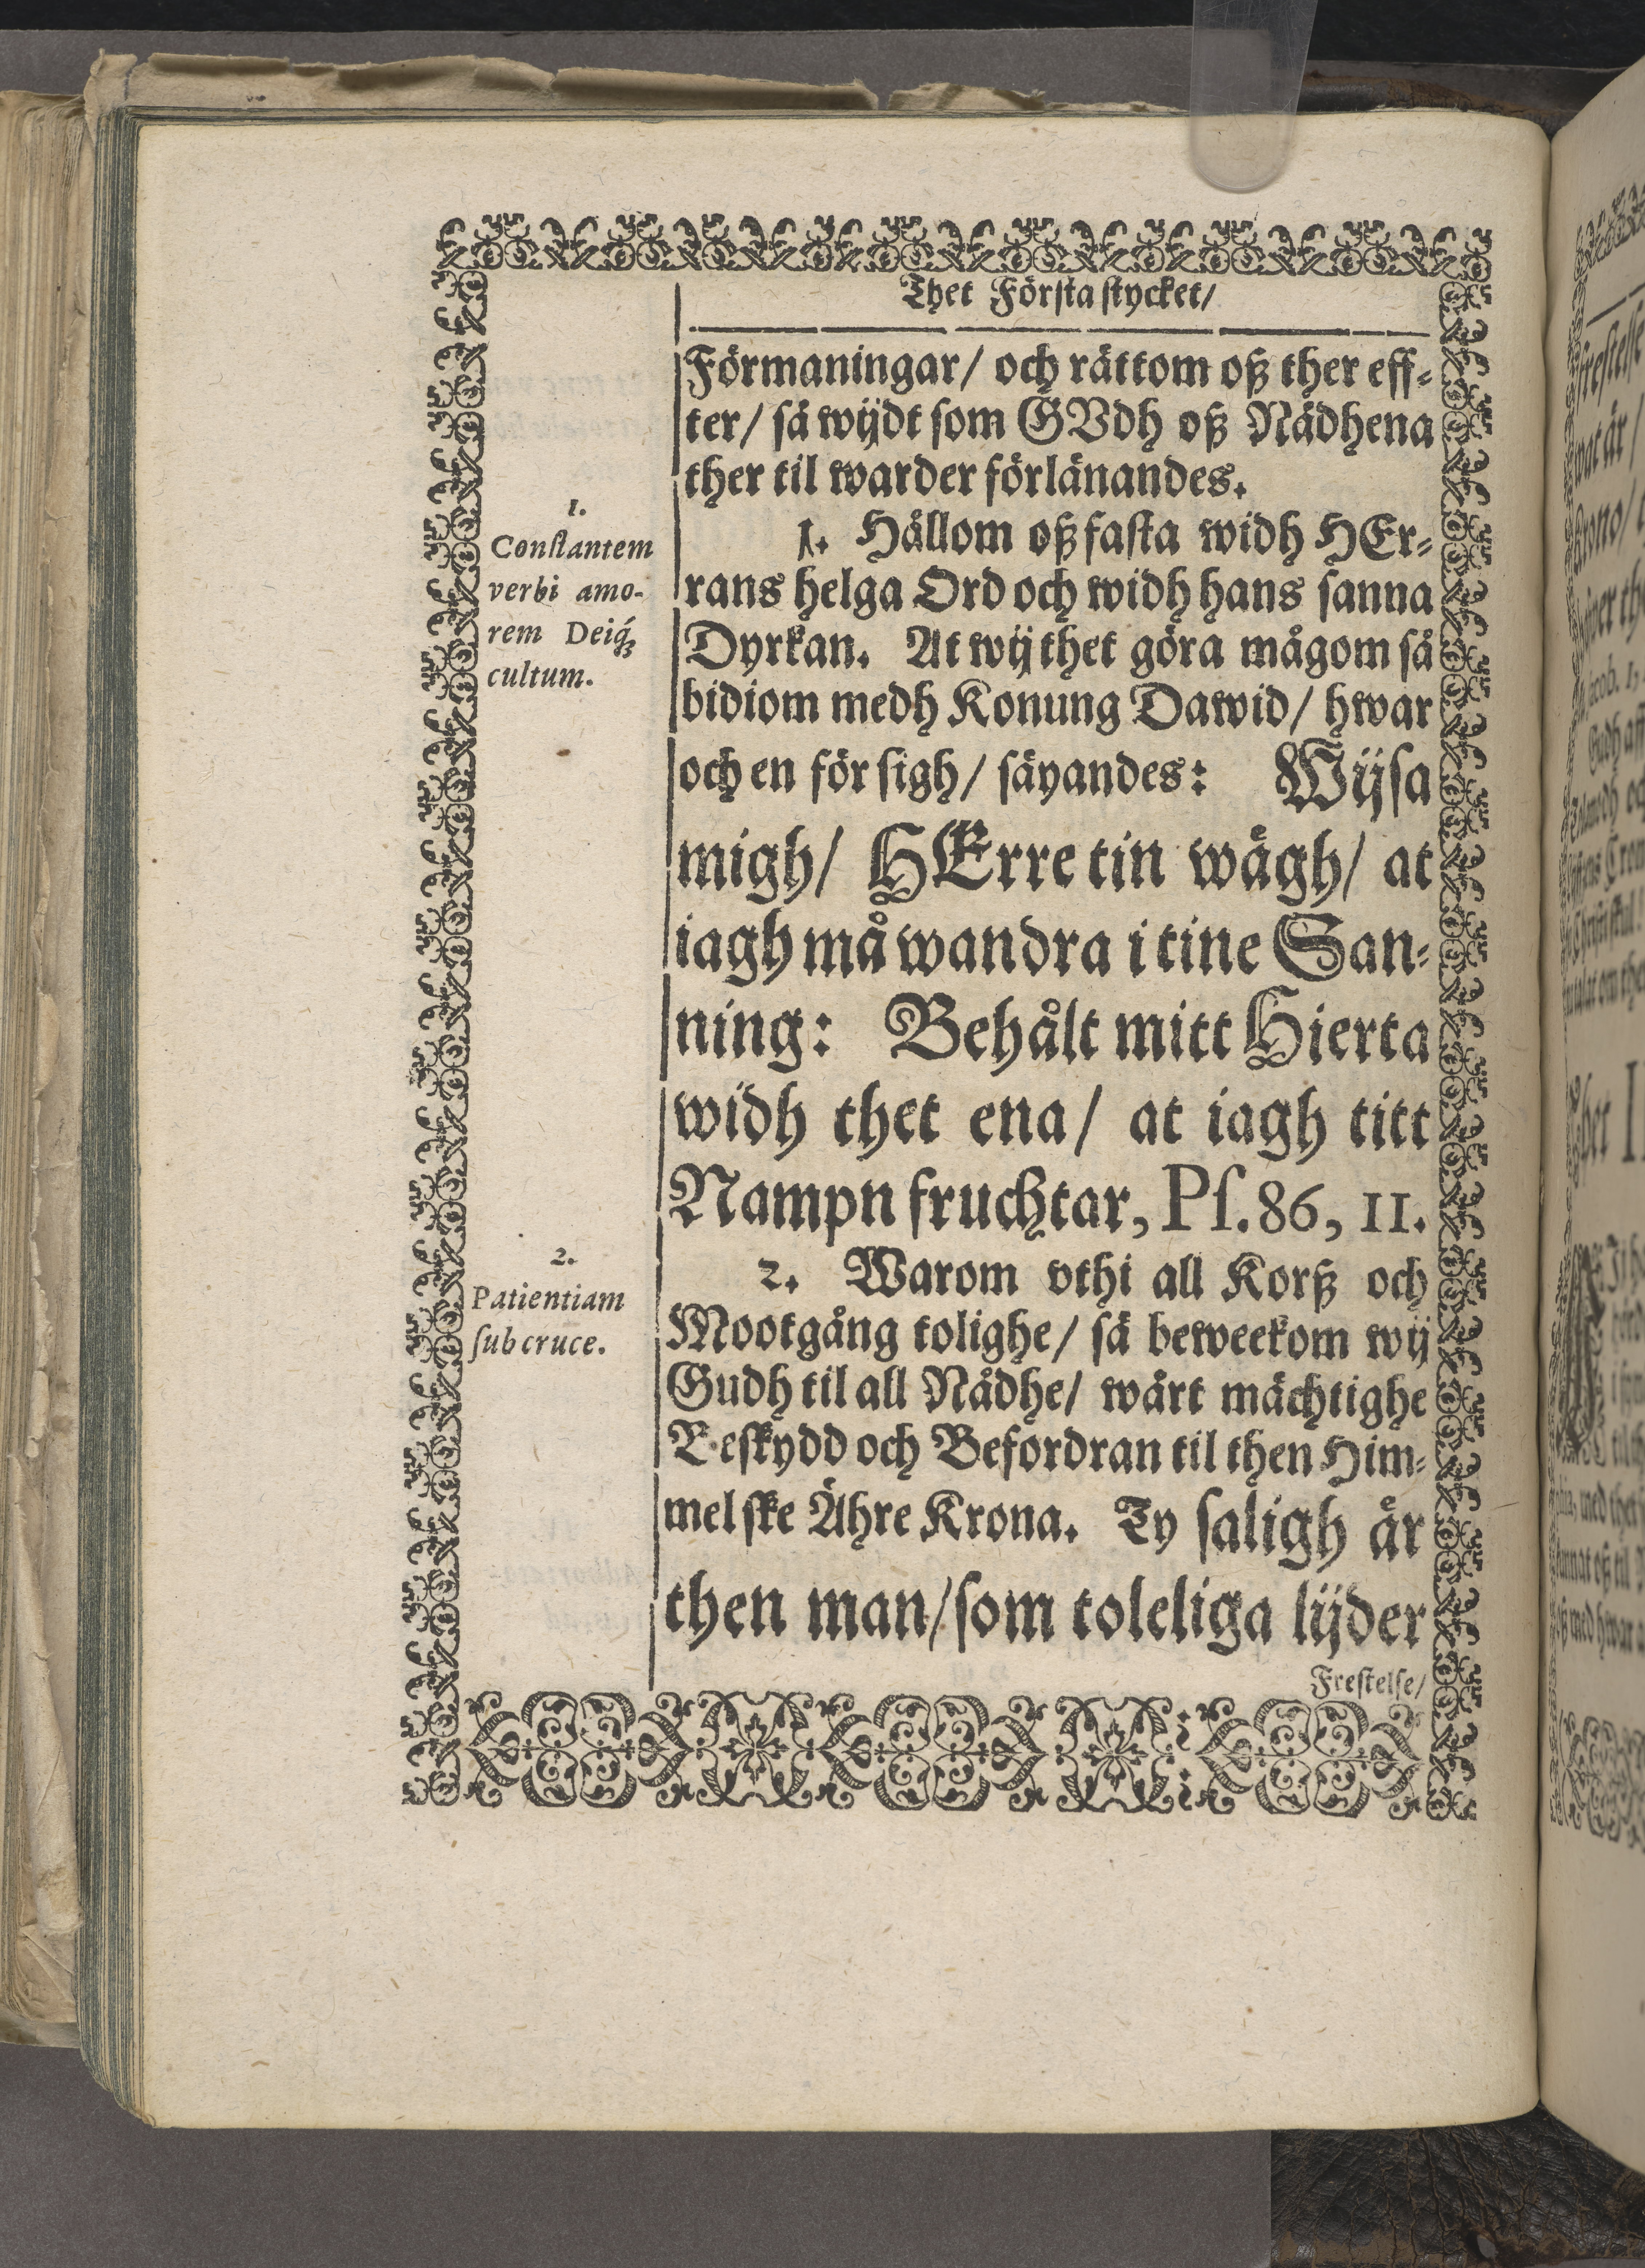 Thet Första stycket/
Förmaningar/ och rättom oß ther eff-
ter/ så wijdt som GVdh oß Nådhena
ther til warder förlänandes.
1.
Constantem
verbi amo-
rem Deiq́ꝫ
cultum.
1. Hållom oß fasta widh HEr-
rans helga Ord och widh hans sanna
Dyrkan. At wij thet göra mågom så
bidiom medh Konung Dawid/ hwar
och en för sigh/ säyandes: Wijsa
migh/ HErre tin wägh/ at
iagh må wandra i tine San-
ning: Behålt mitt Hierta
widh thet ena/ at iagh titt
Nampn fruchtar, Ps. 86, 11.
2.
Patientiam
sub cruce.
2. Warom vthi all Korß och
Mootgång tolighe/ så beweekom wij
Gudh til all Nådhe/ wårt mächtighe
Beskydd och Befordran til then Him-
melske Ähre Krona. Ty saligh är
then man/ som toleliga lijder
Frestelse/